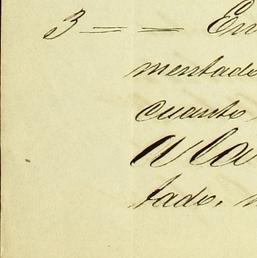 3 = = En
mentado
cuanto
A la
tado, n